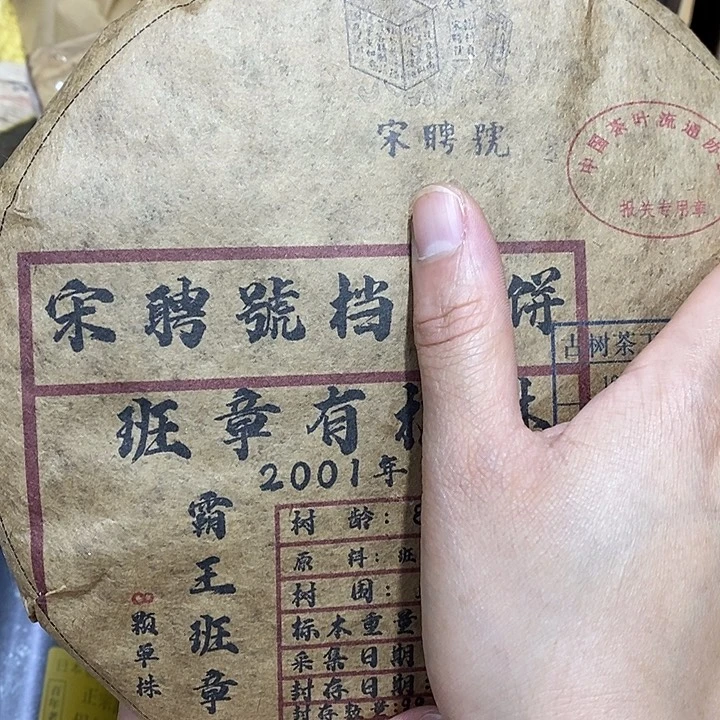 宋聘號
中国茶叶流通协
报关专用章
宋聘號档
饼
古树茶
班章有
2001年
霸王班章
8颗单株
树 龄:
原 料: 班
树 围:
标本重量
采集日期
封存日期
封存数量: